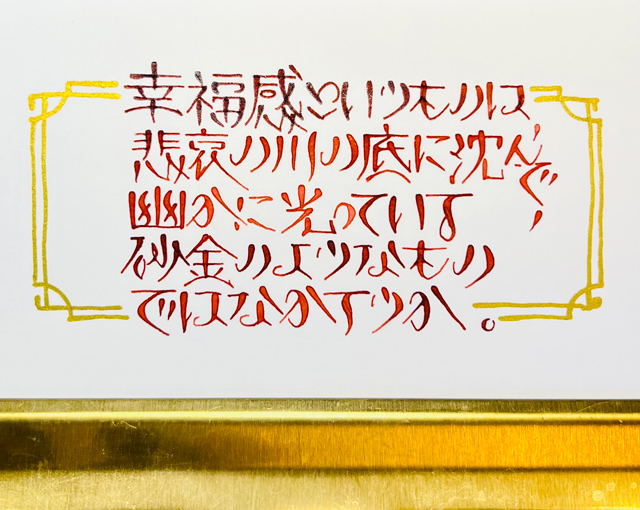 幸福感というものは
悲哀の川の底に沈んで、
幽かに光っている
砂金のようなもの
ではなかろうか。